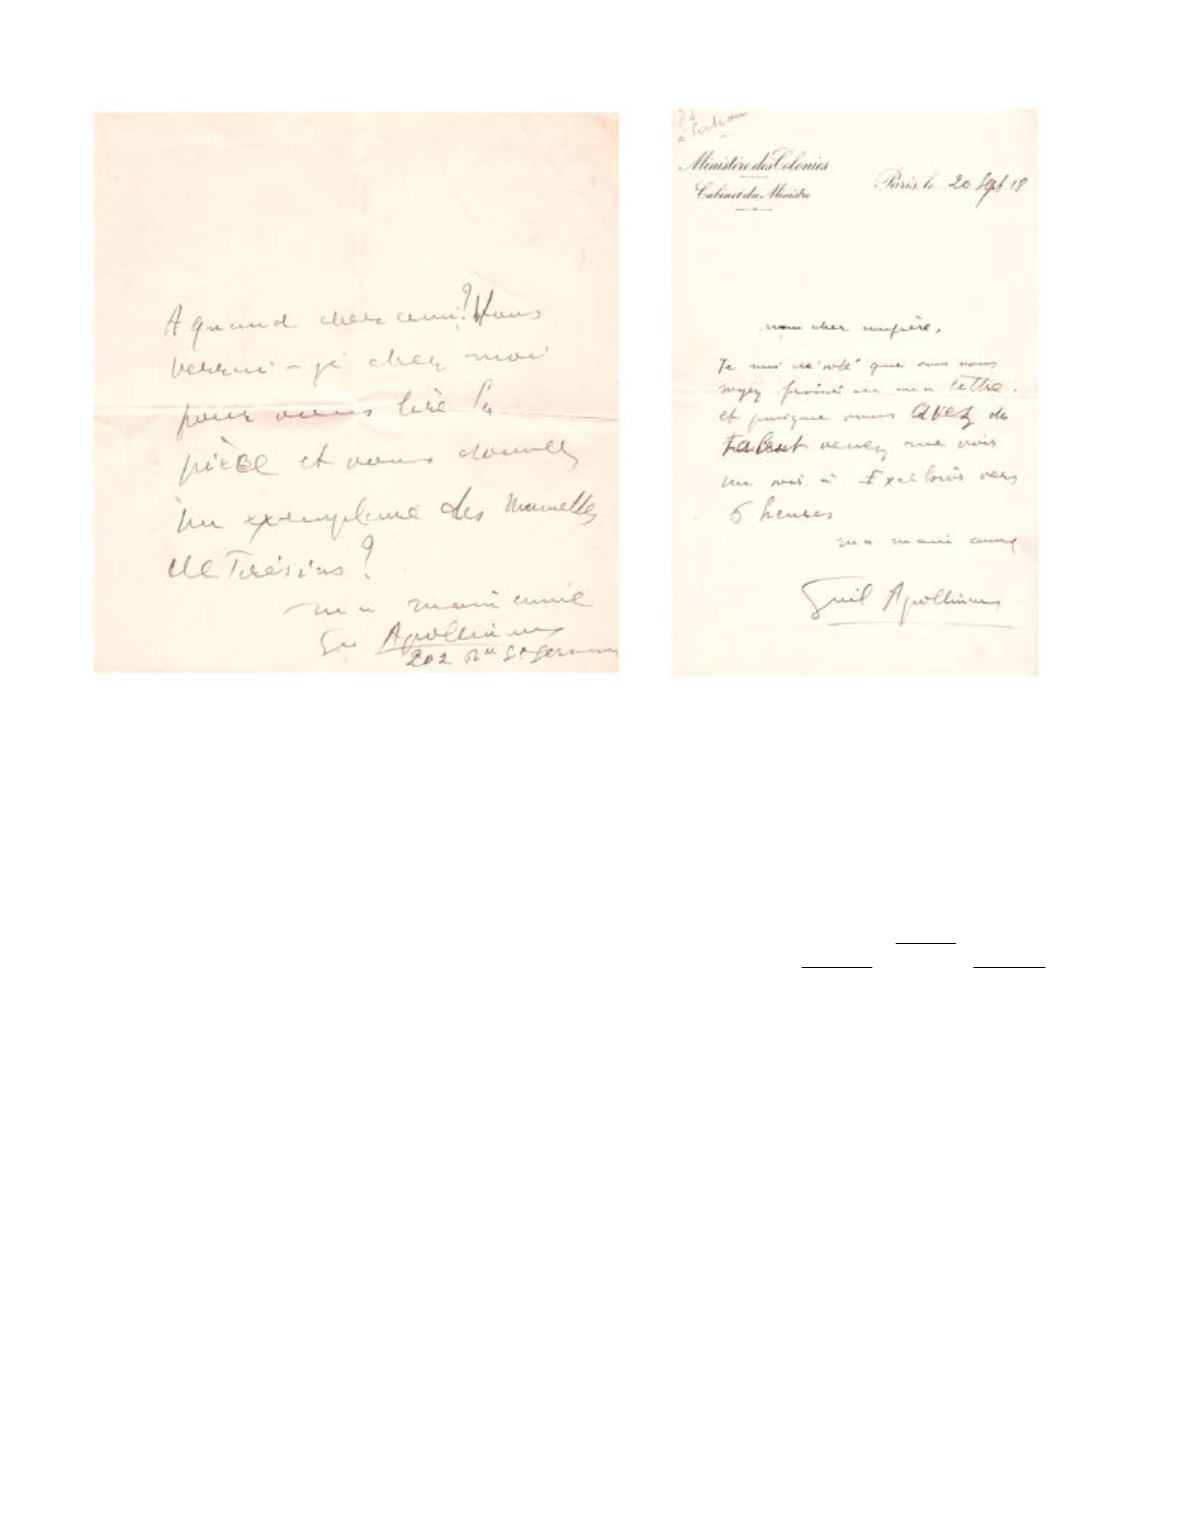 A quand cher ami? Vous
verrai-je chez moi
pour vous lire la
pièce et vous donner
un exemplaire des Mamelles
de Tirésias?
ma main amie
Gu Apollinaire
202 Bd St Germain
Ministère des Colonies
Cabinet du Ministre
Paris, le 20 Sept 18
mon cher confrère,
Je suis désolé que vous vous
soyez froissé de ma lettre.
et puisque vous avez du
talent venez me voir
un soir à Excelsior vers
6 heures
ma main amie
Guil Apollinaire